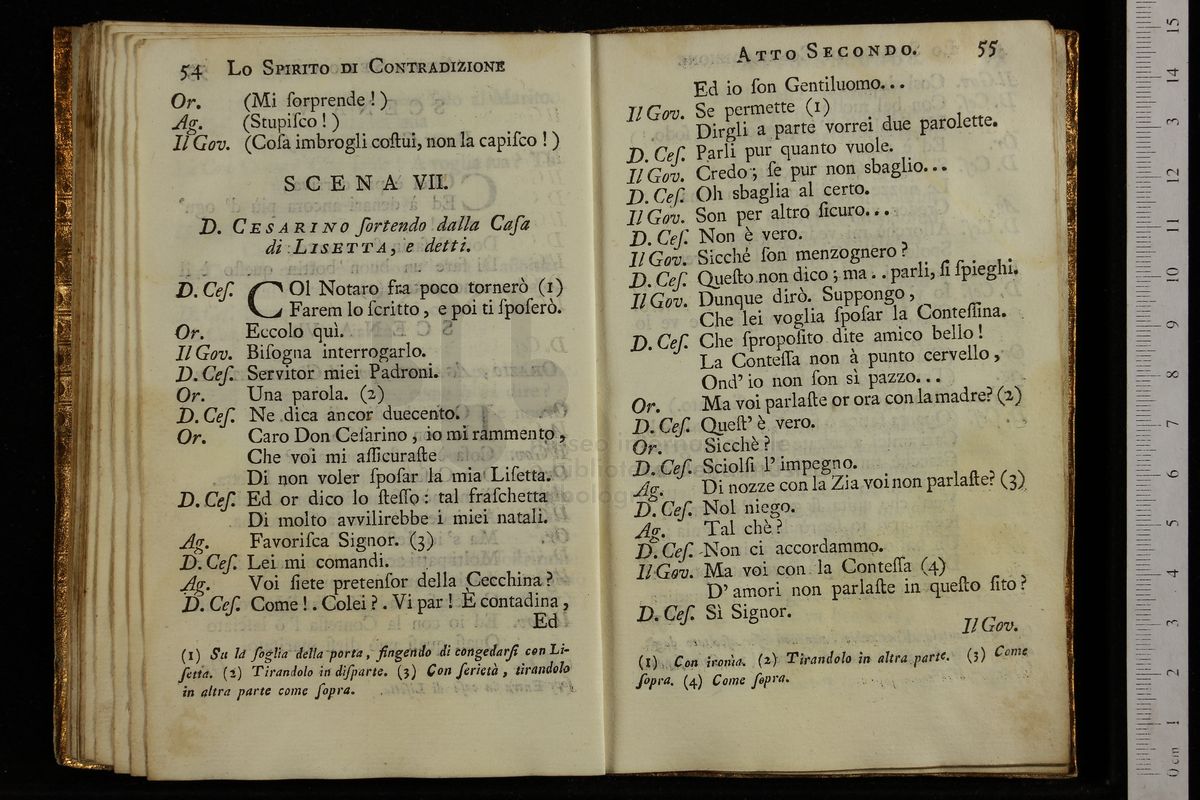 54 Lo Spirito di Contradizione
Or. (Mi ſorprende !)
Ag. (Stupiſco !)
Il Gov. (Coſa imbrogli coſtui, non la capiſco !)
SCENA VII.
D. Cesarino ſortendo dalla Caſa
di Lisetta, e detti.
D. Ceſ. COl Notaro fra poco tornerò (1)
Farem lo ſcritto, e poi ti ſpoſerò.
Or. Eccolo quì.
Il Gov. Biſogna interrogarlo.
D. Ceſ. Servitor miei Padroni.
Or. Una parola. (2)
D. Ceſ. Ne dica ancor duecento.
Or. Caro Don Ceſarino, io mi rammento,
Che voi mi aſſicuraſte
Di non voler ſpoſar la mia Liſetta.
D. Ceſ. Ed or dico lo ſteſſo: tal fraſchetta
Di molto avvilirebbe i miei natali.
Ag. Favoriſca Signor. (3)
D. Ceſ. Lei mi comandi.
Ag. Voi ſiete pretenſor della Cecchina?
D. Ceſ. Come !. Colei ?. Vi par ! È contadina,
Ed
(1) Su la ſoglia della porta, fingendo di congedarſi con Li-
ſetta. (2) Tirandolo in diſparte. (3) Con ſerietà, tirandolo
in altra parte come ſopra.
Atto Secondo. 55
Ed io ſon Gentiluomo...
Il Gov. Se permette (1)
Dirgli a parte vorrei due parolette.
D. Ceſ. Parli pur quanto vuole.
Il Gov. Credo; ſe pur non sbaglio...
D. Ceſ. Oh sbaglia al certo.
Il Gov. Son per altro ſicuro...
D. Ceſ. Non è vero.
Il Gov. Sicché ſon menzognero?
D. Ceſ. Queſto non dico; ma.. parli, ſi ſpieghi.
Il Gov. Dunque dirò. Suppongo,
Che lei voglia ſpoſar la Conteſſina.
D. Ceſ. Che ſpropoſito dite amico bello!
La Conteſſa non à punto cervello,
Ond' io non ſon sì pazzo...
Or. Ma voi parlaſte or ora con la madre? (2)
D. Ceſ. Queſt' è vero.
Or. Sicchè?
D. Ceſ. Sciolſi l' impegno.
Ag. Di nozze con la Zia voi non parlaſte? (3)
D. Ceſ. Nol niego.
Ag. Tal chè?
D. Ceſ. Non ci accordammo.
Il Gov. Ma voi con la Conteſſa (4)
D' amori non parlaſte in queſto ſito?
D. Ceſ. Sì Signor.
Il Gov.
(1) Con ironìa. (2) Tirandolo in altra parte. (3) Come
ſopra. (4) Come ſopra.
0 cm 1 2 3 4 5 6 7 8 9 10 11 12 13 14 15